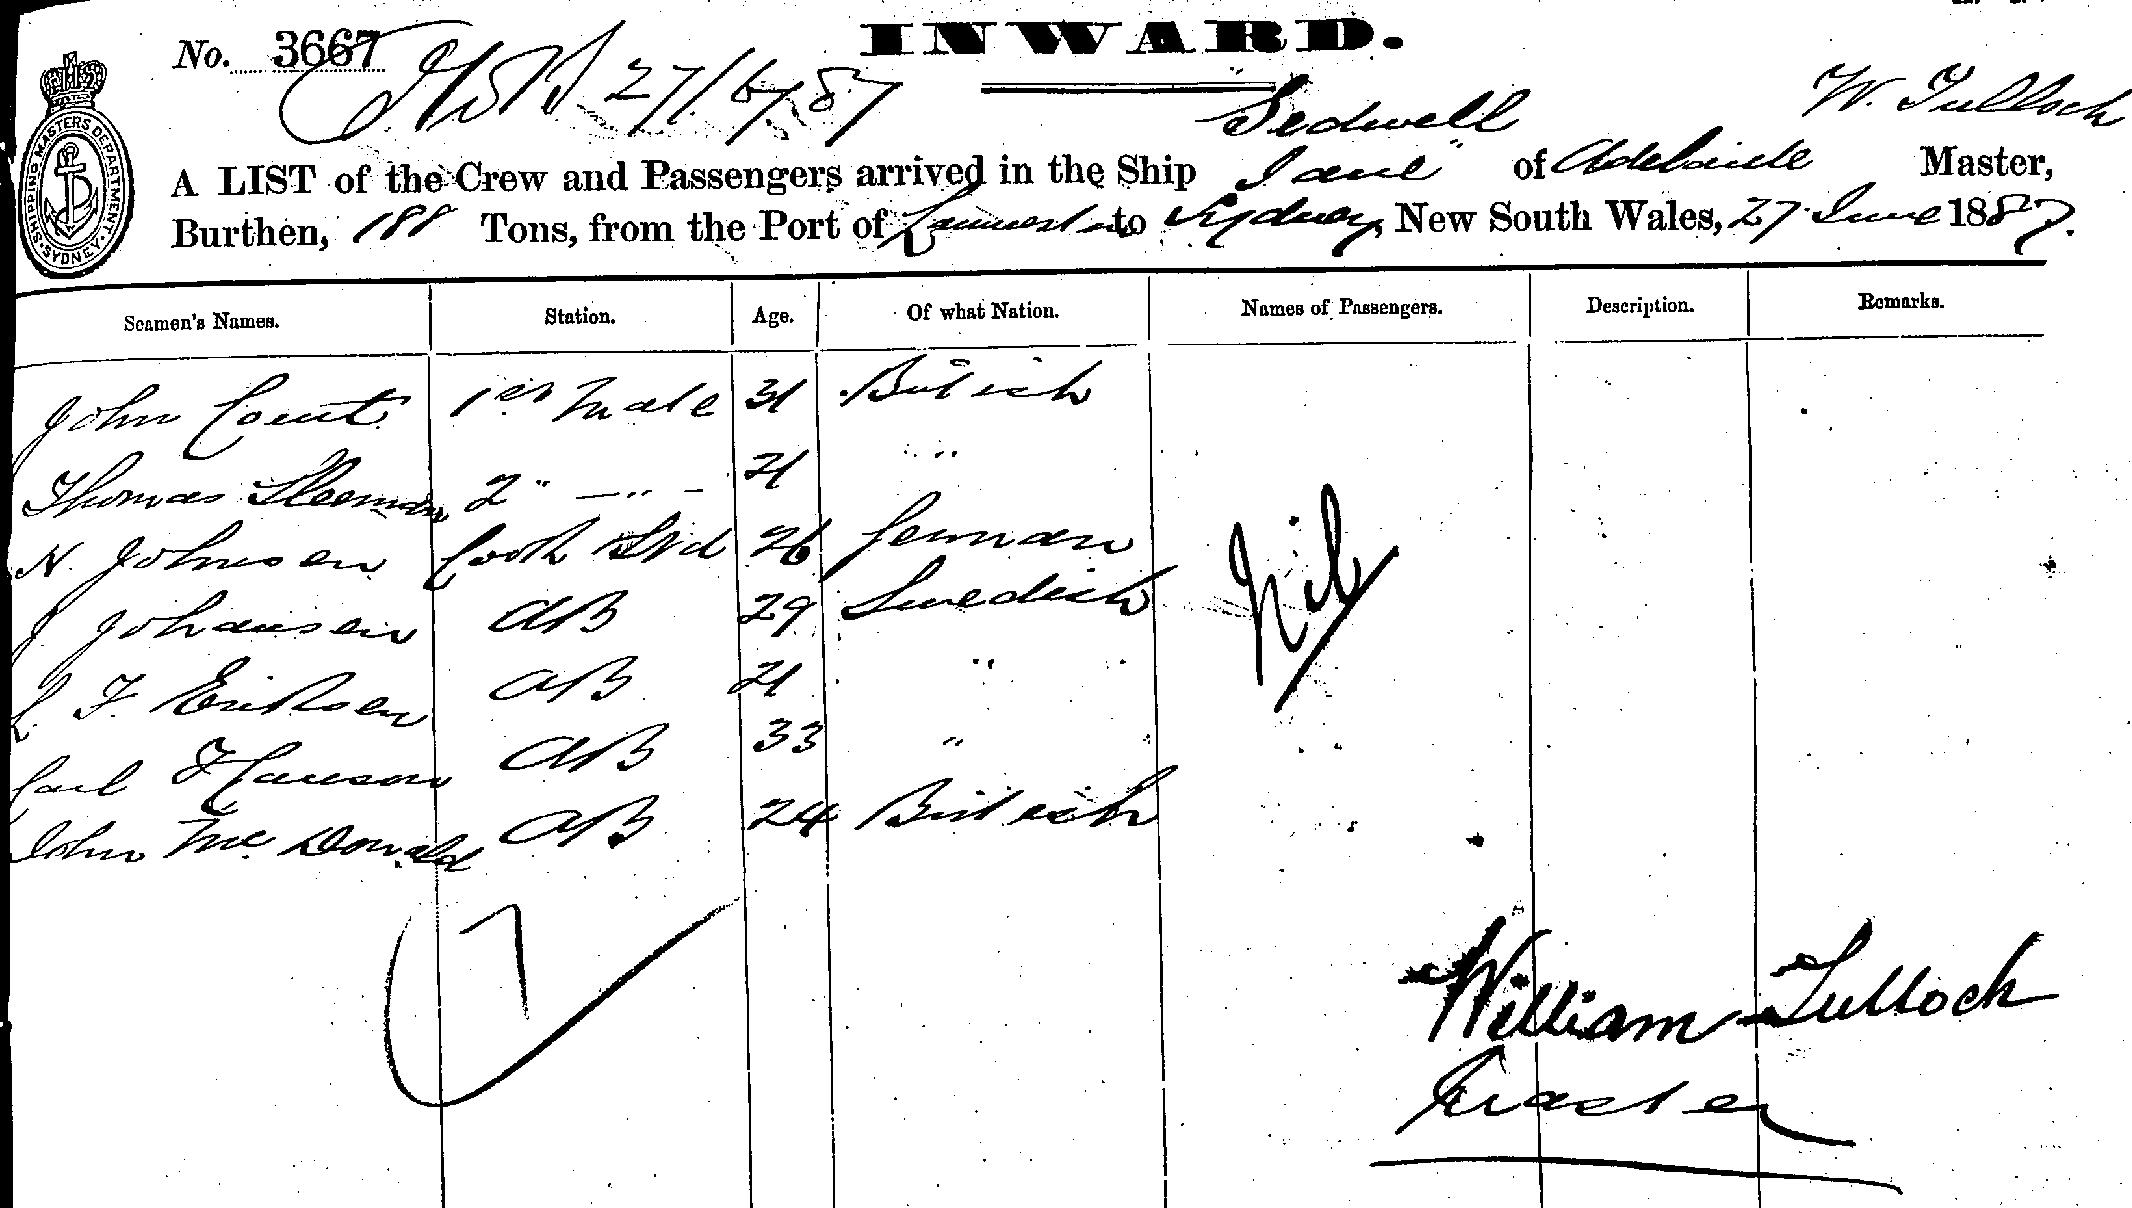 INWARD.
No. 3667
27/6/87
SHIPPING MASTERS DEPARTMENT. SYDNEY
Sedwell W. Tulloch
A LIST of the Crew and Passengers arrived in the Ship Jane" of Adelaide Master,
Burthen, 188 Tons, from the Port of to Sydney, New South Wales, 27 June 1887.
Seamen's Names. Station. Age. Of what Nation. Names of Passengers. Description. Remarks.
John 1st Mate 31 British
Thomas Sleeman 2" —"— 21 "
N. Johnsen Cook Std 26 German
J Johansen AB 29 Swedish
Nil
L. F. Eriksen AB 21 "
Carl AB 33 "
John McDonald AB 24 British
7
William Tulloch
Master